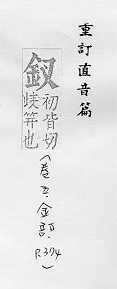 重訂直音篇
釵
初皆切
岐笄也
(卷五金部
P.374)